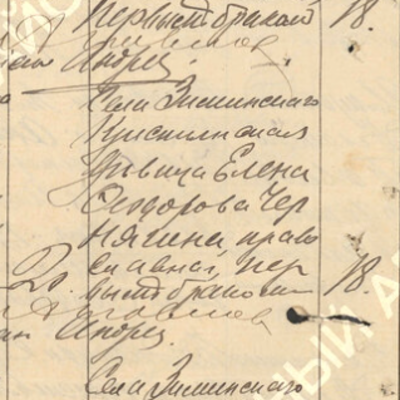 первымъ бракомъ 18.
Андрей
Села Зиминскаго
Крестьянская
дѣвица Елена
Феодорова Чер
нягина, право
славная, пер
вымъ бракомъ 18.
Андрей.
Села Зиминскаго